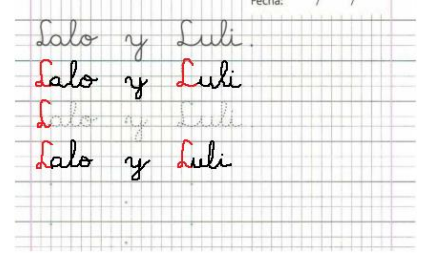 Fecha: / /
Lalo y Luli.
Lalo y Luli
Lalo y Luli
Lalo y Luli